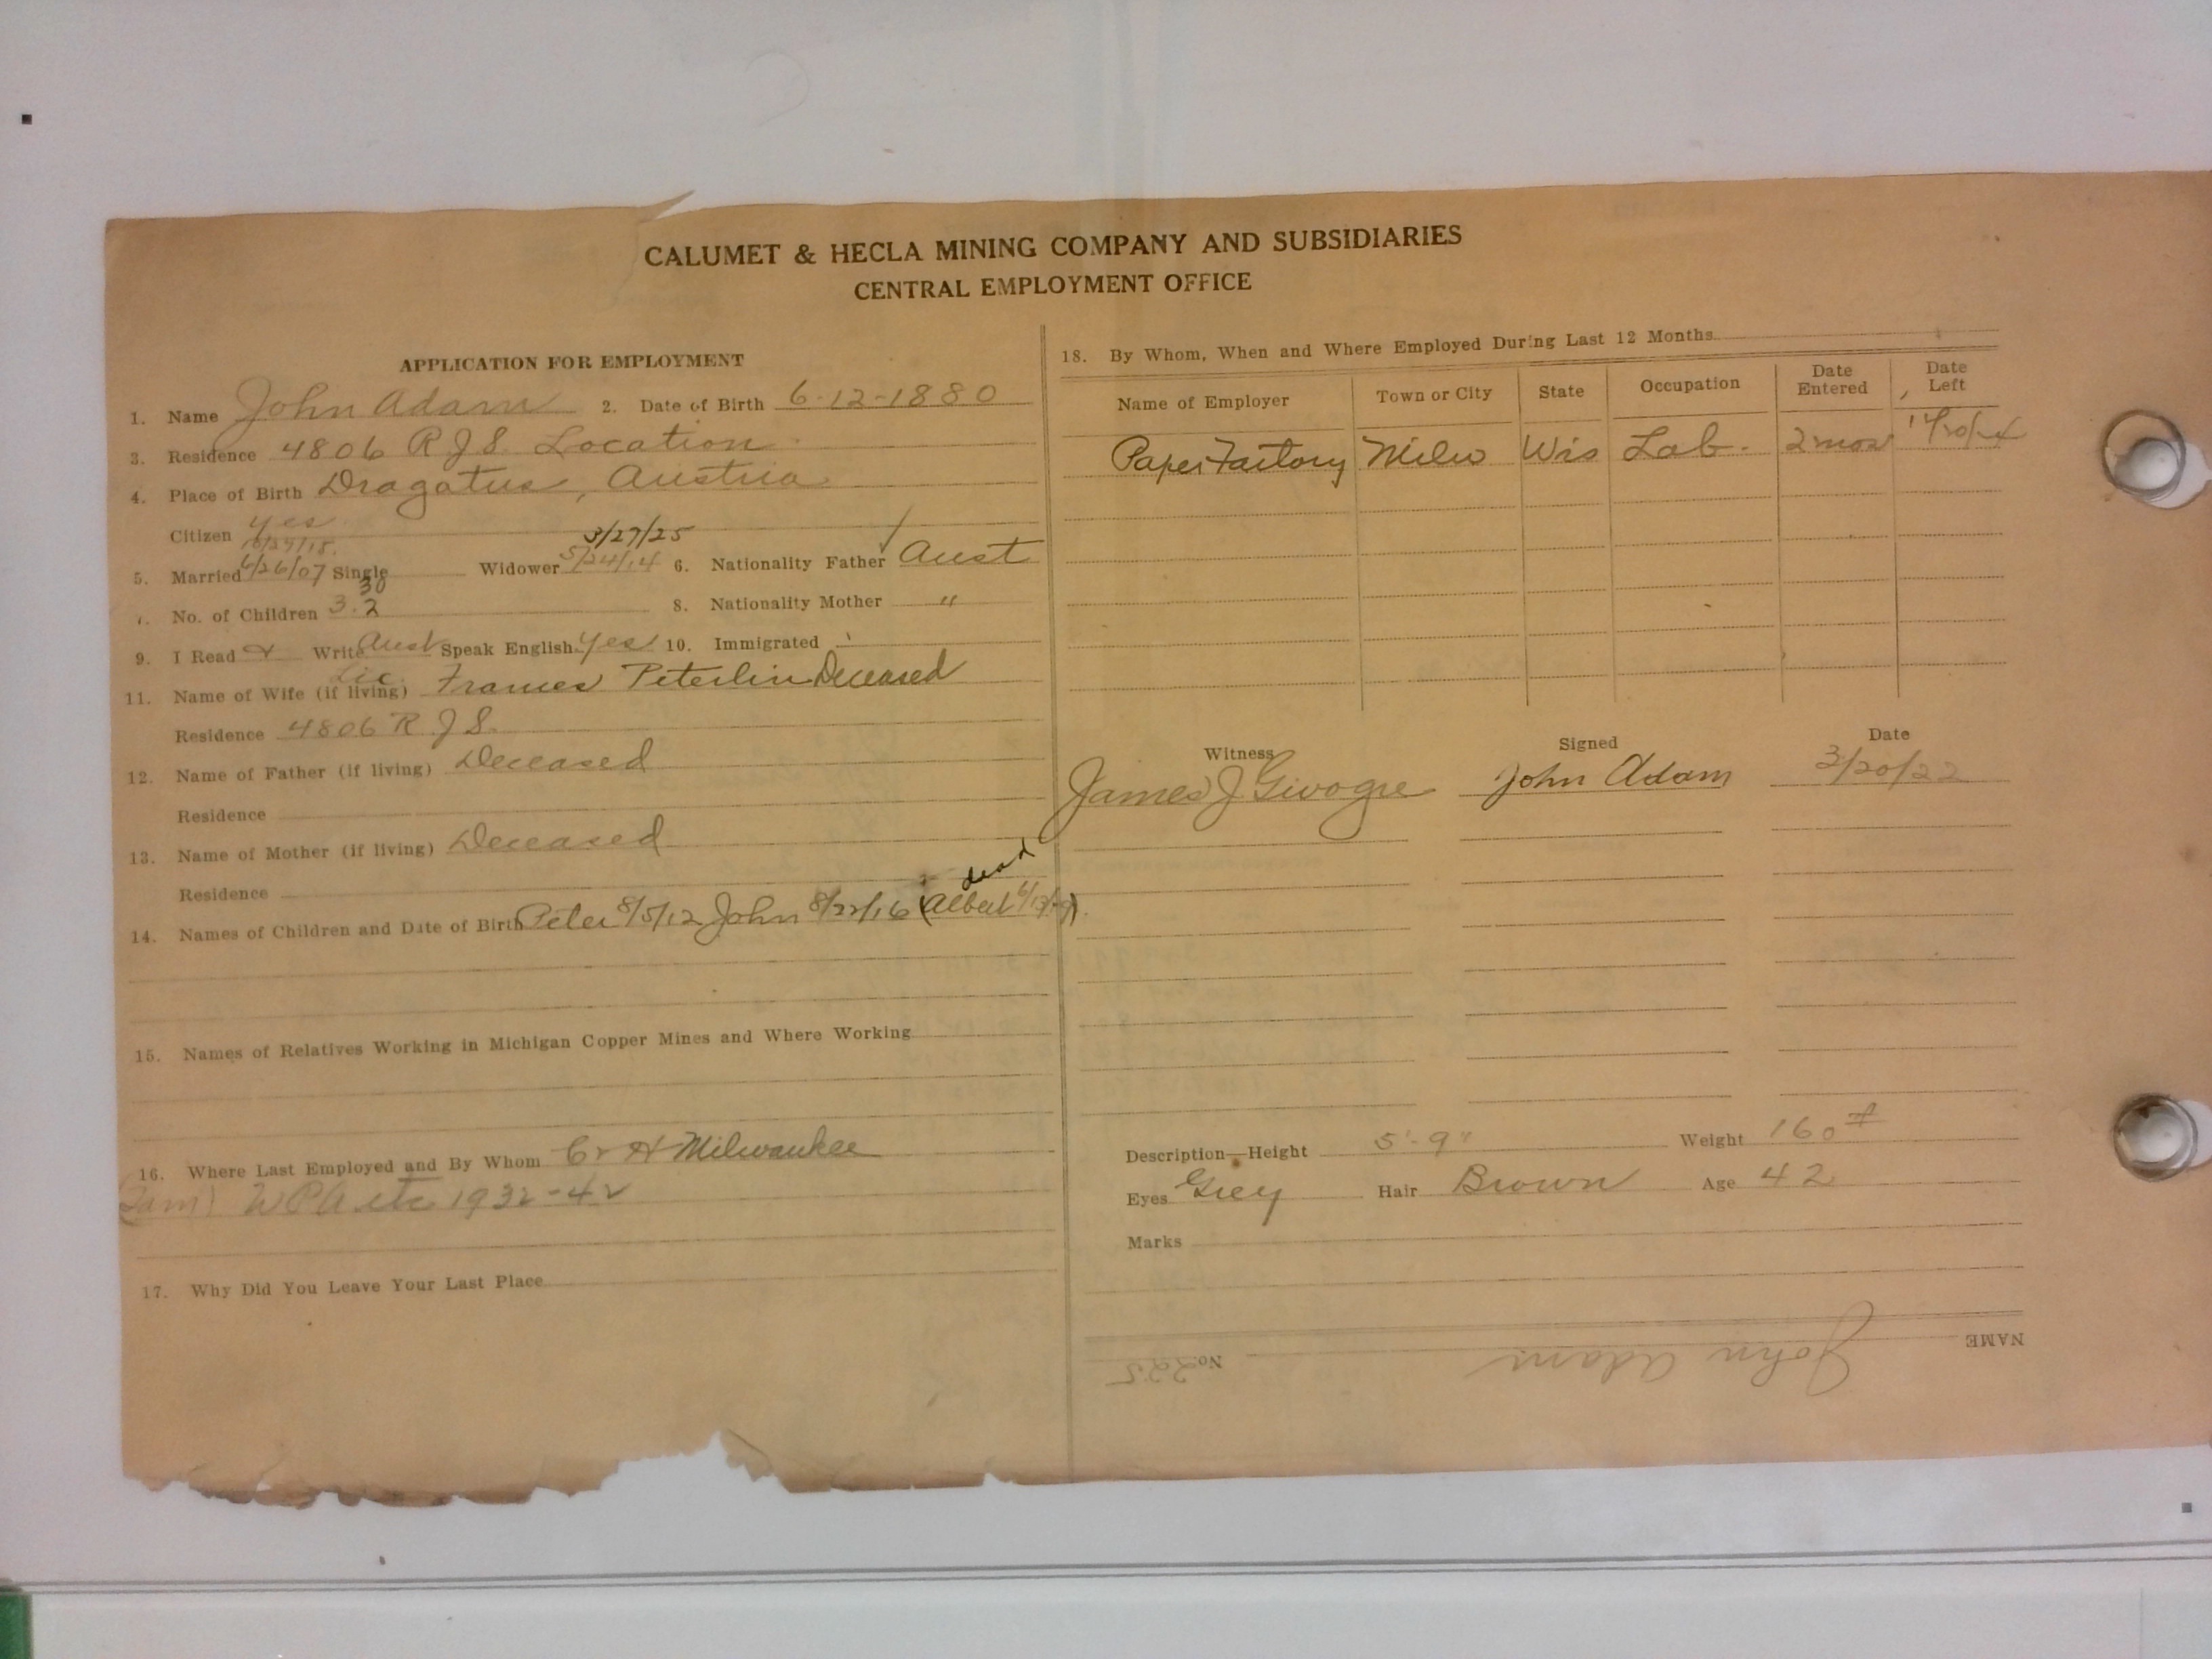 CALUMET & HECLA MINING COMPANY AND SUBSIDIARIES
CENTRAL EMPLOYMENT OFFICE
APPLICATION FOR EMPLOYMENT
1. Name John Adam 2. Date of Birth 6-12-1880
3. Residence 4806 R J S. Location
4. Place of Birth Dragatus, Austria
Citizen yes
3/27/25
5. Married 6/26/07 Single Widower 5/24/14 6. Nationality Father Aust
30
No. of Children 3. 2 8. Nationality Mother "
9. I Read & Write Aust Speak English yes 10. Immigrated
11. Name of Wife (if living) Frances Peterlin Deceased
Residence 4806 R J S.
12. Name of Father (if living) Deceased
Residence
13. Name of Mother (if living) Deceased
Residence
dead
14. Names of Children and Date of Birth Peter 8/5/12 John 8/22/16 (Albert
15. Names of Relatives Working in Michigan Copper Mines and Where Working
16. Where Last Employed and By Whom C & H Milwaukee
WPA etc 1932-42
17. Why Did You Leave Your Last Place
18. By Whom, When and Where Employed During Last 12 Months
Name of Employer Town or City State Occupation Date Entered Date Left
Paper Factory Milw Wis Lab. 2 mos
Witness Signed Date
James J John Adam 3/20/22
Description—Height 5'-9" Weight 160#
Eyes Grey Hair Brown Age 42
Marks
NAME John Adam No 225